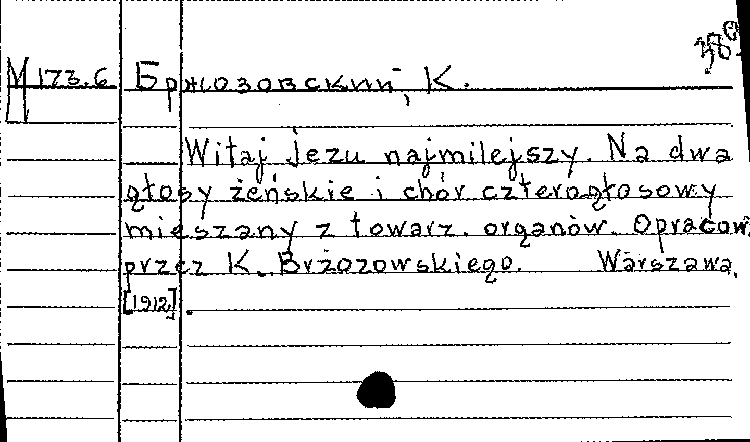 M 173.6 Бржозовский, К.
Witaj Jezu najmilejszy. Na dwa
głosy żeńskie i chór czterogłosowy
mieszany z towarz. organów. Opracow.
przez K. Brżozowskiego. Warszawa,
[1912].